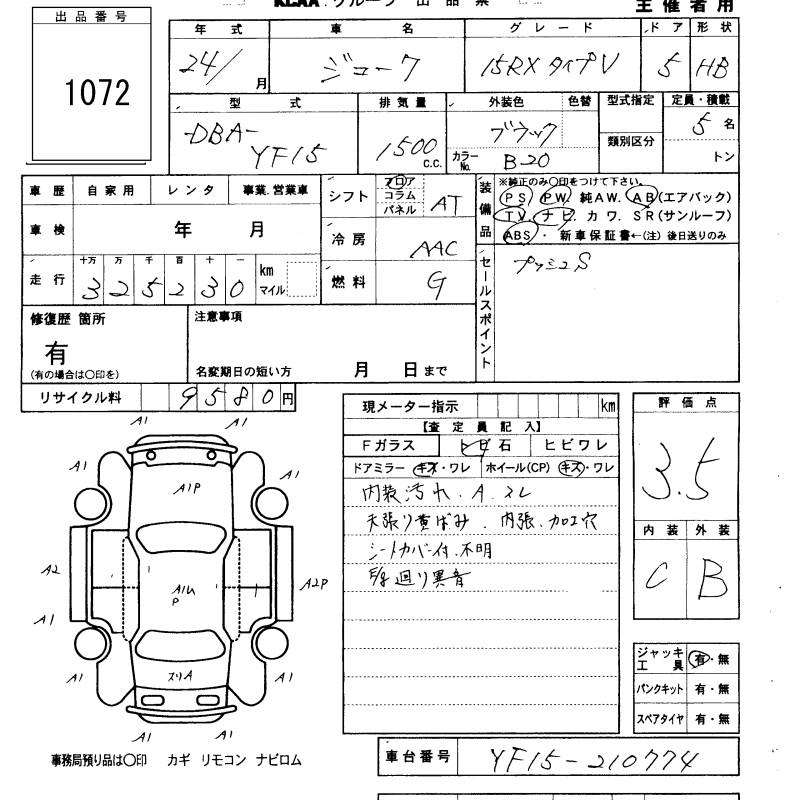 KCAA グループ 出品票
主催者用
出品番号
1072
年式 車名 グレード ドア 形状
24/ 月 ジューク 15RX タイプV 5 HB
型式 排気量 外装色 色替 型式指定 定員・積載
-DBA-YF15 1500 c.c. ブラック 類別区分 5 名
カラーNo. B-20 トン
車歴 自家用 レンタ 事業.営業車
車検 年 月
走行 十万 万 千 百 十 一 km マイル
3 2 5 2 3 0
シフト フロア コラム パネル AT
冷房 AAC
燃料 G
装備品 ※純正のみ〇印をつけて下さい。
PS PW. 純AW. AB(エアバック)
TV. ナビ. カワ. SR(サンルーフ)
ABS・ 新車保証書←(注) 後日送りのみ
セールスポイント プッシュS
修復歴 箇所 注意事項
有
(有の場合は〇印を) 名変期日の短い方 月 日まで
リサイクル料 9580円
現メーター指示 km
【査定員記入】
Fガラス トビ石 ヒビワレ
ドアミラー キズ・ワレ ホイール(CP) キズ・ワレ
内装汚れ.A.スレ
天張り黄ばみ. 内張.加工穴
シートカバー付.不明
E/g 廻り異音
評価点
3.5
内装 外装
C B
ジャッキ工具 有・無
パンクキット 有・無
スペアタイヤ 有・無
A1 A1
A1 A1
A1P
A2 A2P
A1 A1
A1 A1
スリA
A1 A1
事務局預り品は〇印 カギ リモコン ナビロム
車台番号 YF15-210774